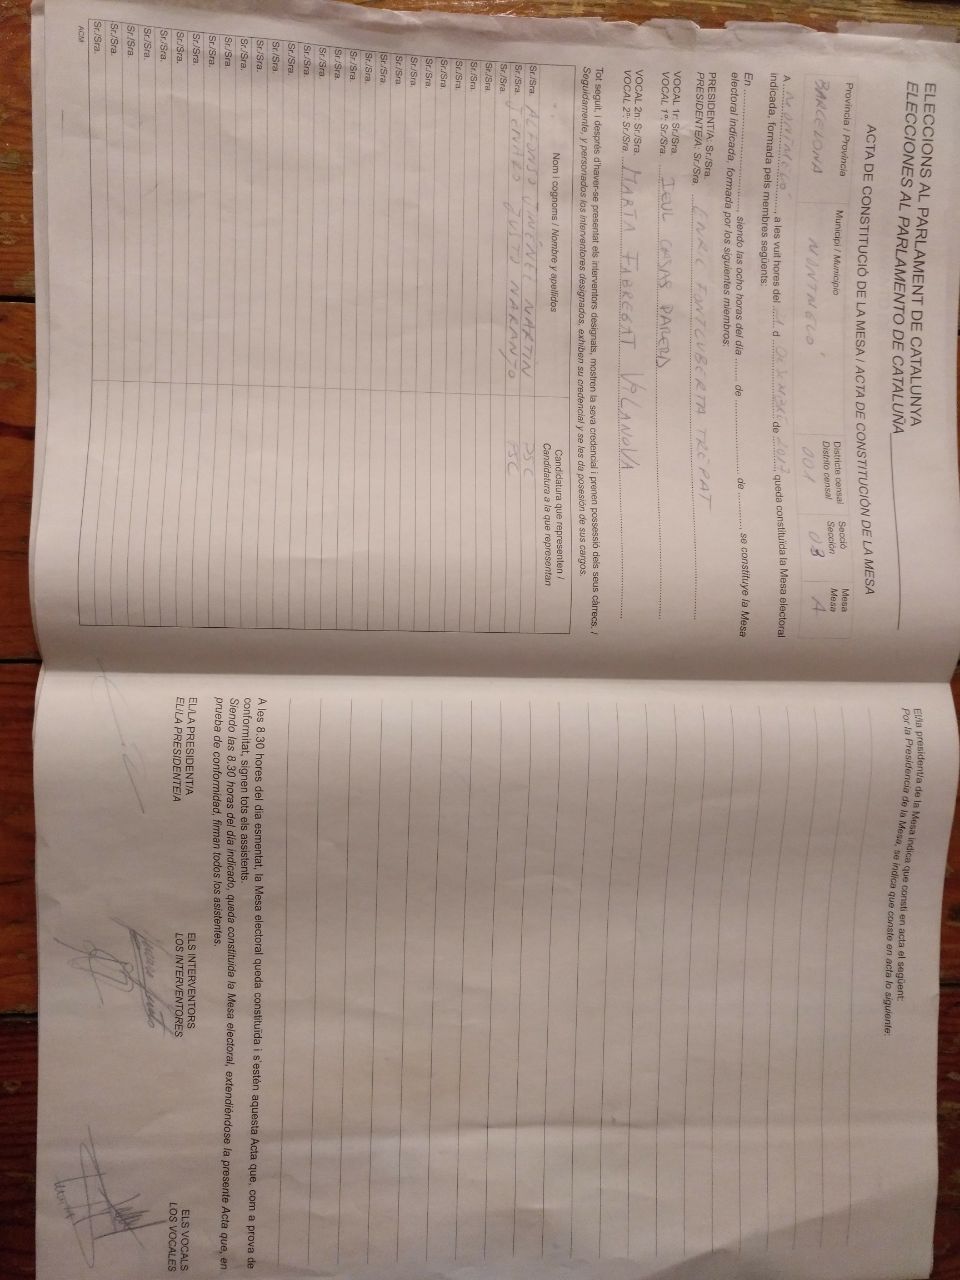 ELECCIONS AL PARLAMENT DE CATALUNYA
ELECCIONES AL PARLAMENTO DE CATALUÑA
ACTA DE CONSTITUCIÓ DE LA MESA / ACTA DE CONSTITUCIÓN DE LA MESA
Província / Provincia Municipi / Municipio Districte censal Distrito censal Secció Sección Mesa Mesa
BARCELONA MUNTMELÓ 001 03 A
A MUNTMELÓ, a les vuit hores del 21 d DESEMBRE de 2017, queda constituïda la Mesa electoral
indicada, formada pels membres següents:
En ................, siendo las ocho horas del día ........ de ................ de ........ se constituye la Mesa
electoral indicada, formada por los siguientes miembros:
PRESIDENT/A: Sr./Sra.
PRESIDENTE/A: Sr./Sra. ENRIC FONTCUBERTA TREPAT
VOCAL 1r: Sr./Sra.
VOCAL 1º: Sr./Sra. CASAS PARERA
VOCAL 2n: Sr./Sra.
VOCAL 2º: Sr./Sra. MARTA FABREGAT VILANOVA
Tot seguit, i després d'haver-se presentat els interventors designats, mostren la seva credencial i prenen possessió dels seus càrrecs. /
Seguidamente, y personados los interventores designados, exhiben su credencial y se les da posesión de sus cargos.
Nom i cognoms / Nombre y apellidos Candidatura que representen / Candidatura a la que representan
Sr./Sra. ALFONSO JIMÉNEZ MARTIN PSC
Sr./Sra. GENARO JUSTO NARANJO PSC
Sr./Sra.
Sr./Sra.
Sr./Sra.
Sr./Sra.
Sr./Sra.
Sr./Sra.
Sr./Sra.
Sr./Sra.
Sr./Sra.
Sr./Sra.
Sr./Sra.
Sr./Sra.
Sr./Sra.
Sr./Sra.
Sr./Sra.
Sr./Sra.
Sr./Sra.
Sr./Sra.
Sr./Sra.
Sr./Sra.
Sr./Sra.
Sr./Sra.
Sr./Sra.
Sr./Sra.
Sr./Sra.
Sr./Sra.
Sr./Sra.
ACM
El/la president/a de la Mesa indica que consti en acta el següent:
Por la Presidencia de la Mesa, se indica que conste en acta lo siguiente:
A les 8.30 hores del dia esmentat, la Mesa electoral queda constituïda i s'estén aquesta Acta que, com a prova de
conformitat, signen tots els assistents.
Siendo las 8.30 horas del día indicado, queda constituida la Mesa electoral, extendiéndose la presente Acta que, en
prueba de conformidad, firman todos los asistentes.
EL/LA PRESIDENT/A
EL/LA PRESIDENTE/A
ELS INTERVENTORS
LOS INTERVENTORES
ELS VOCALS
LOS VOCALES